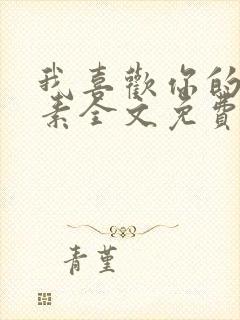 我喜歡你的
素全文免費
青堇